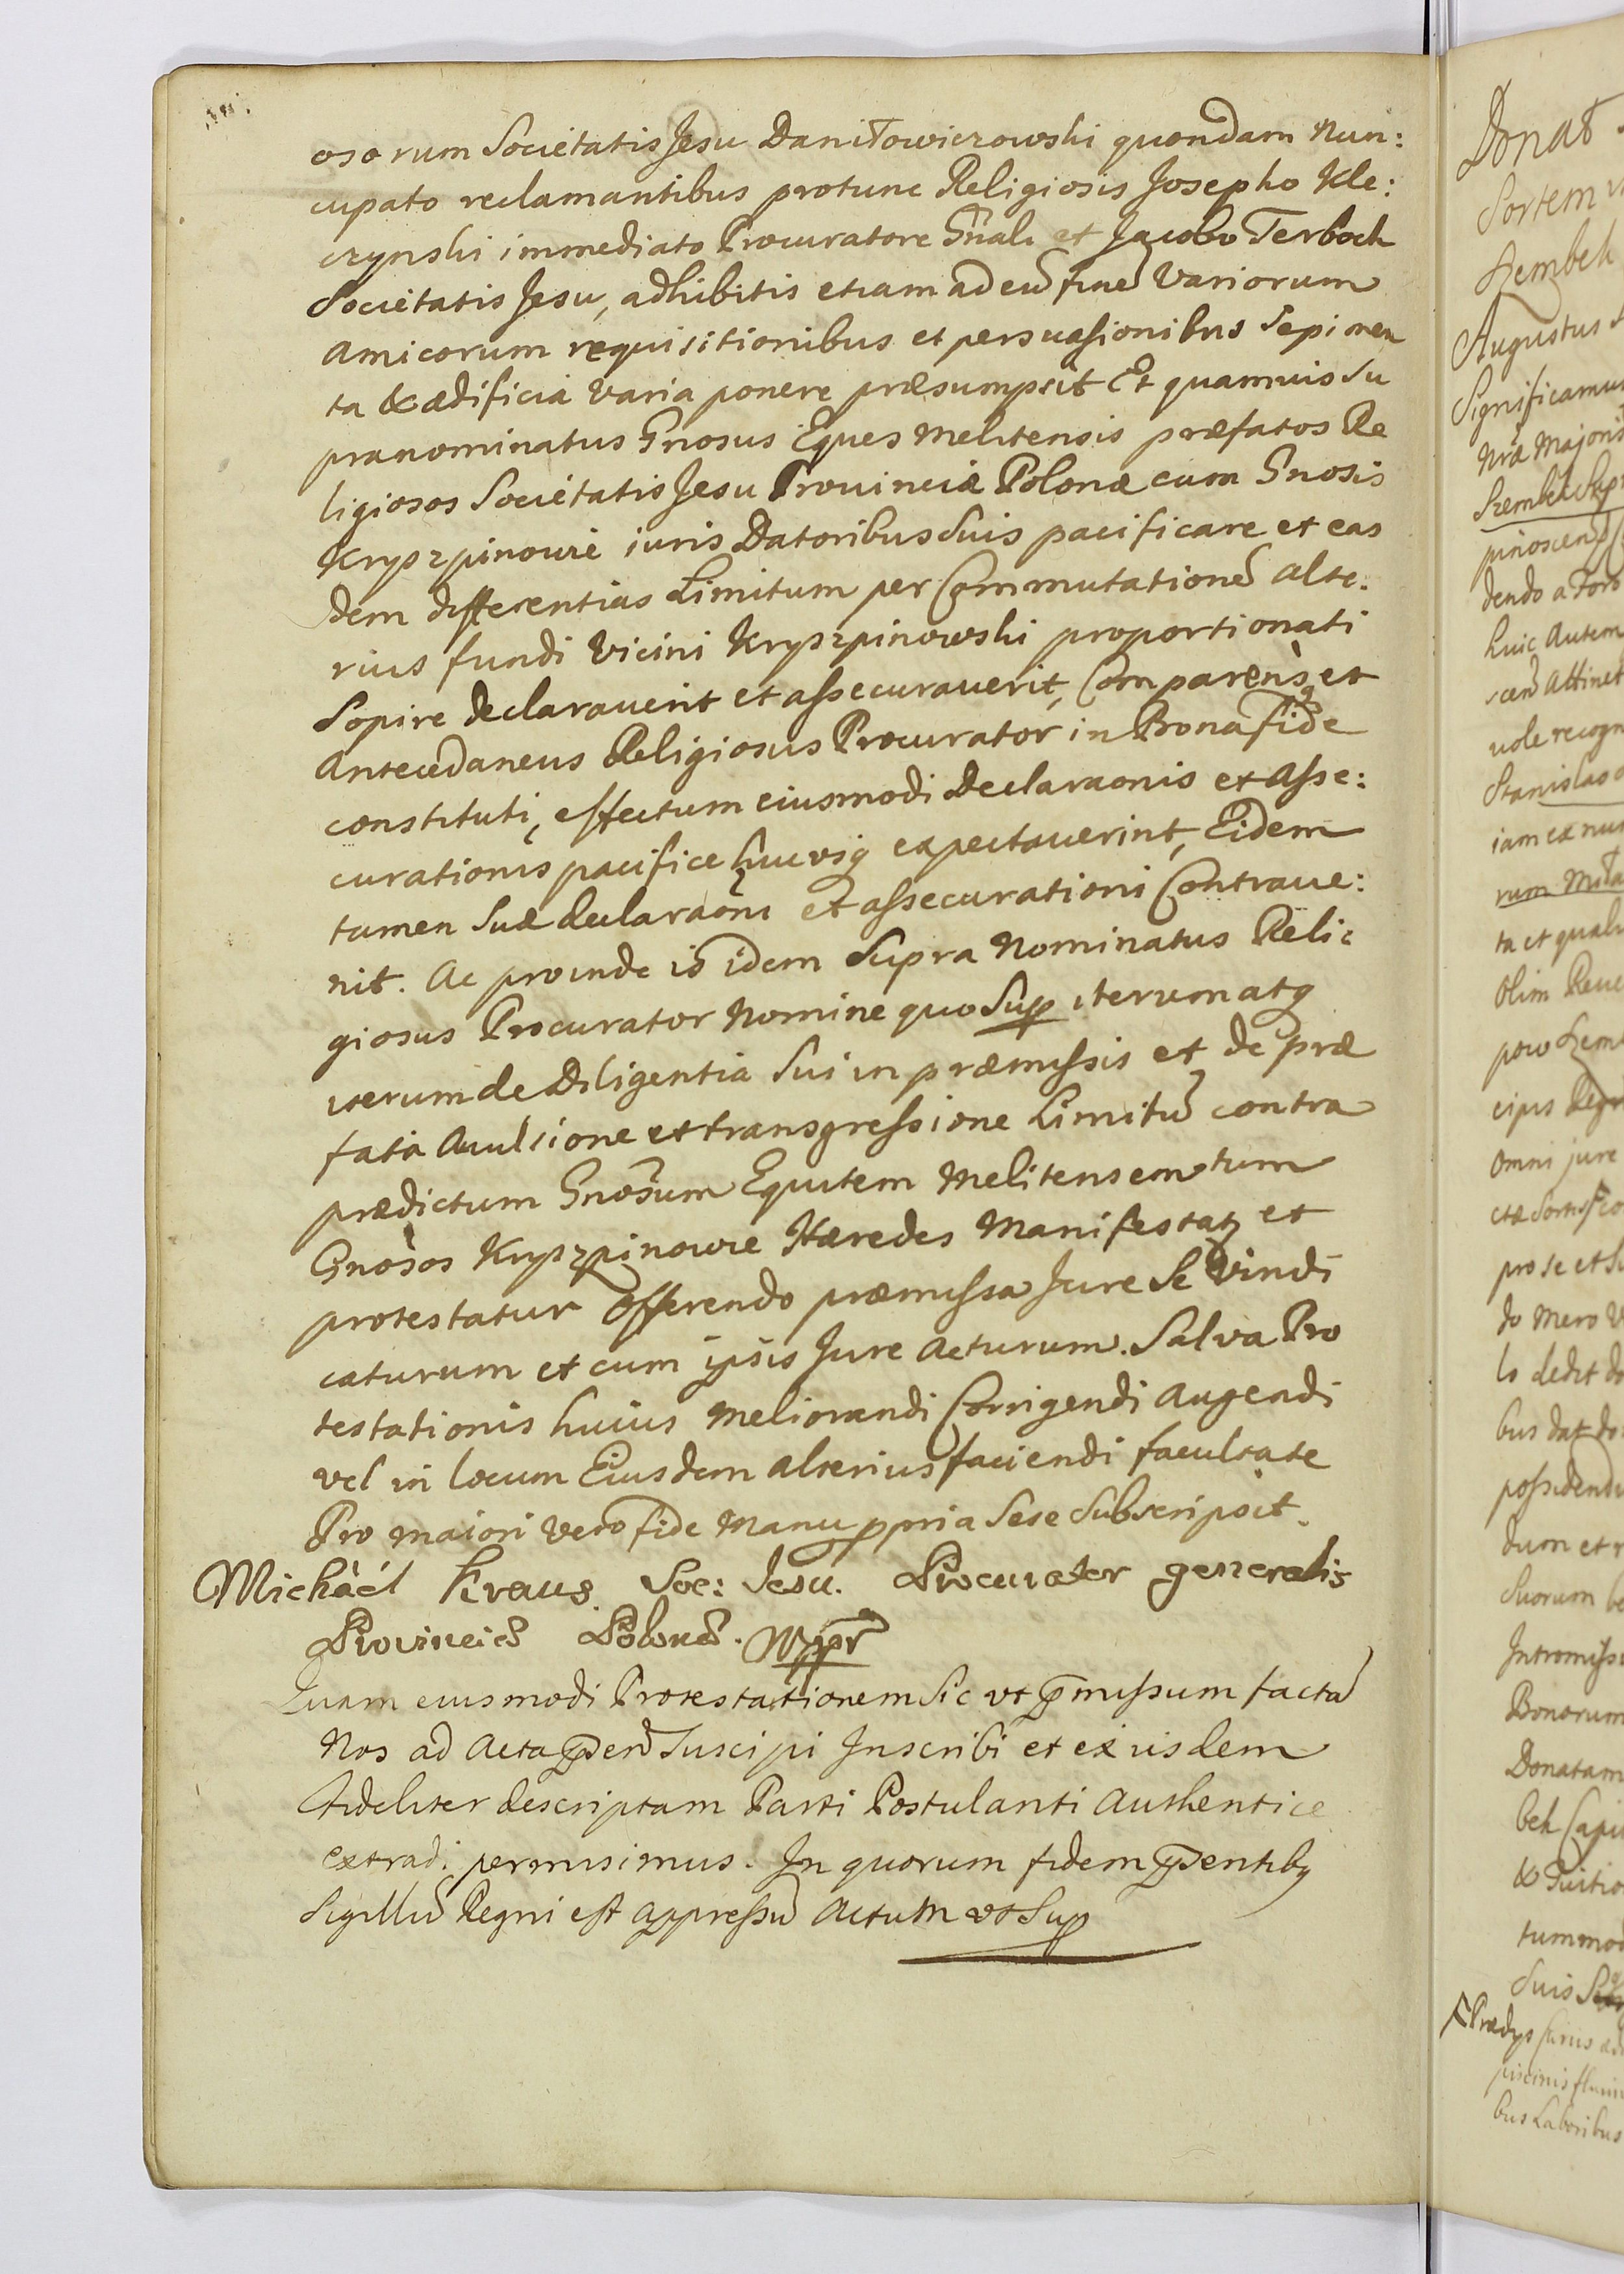 osorum Societatis Jesu Daniłowiczowski quondam Nun:
cupato reclamantibus protunc Religiosis Josepho Kle:
czynski immediato Procuratore Gñali et Jacobo Terboch
Societatis Jesu, adhibitis etiam ad eũ finẽ Variorum
Amicorum requisitionibus et persuasionibus Sepimen
ta & ædificia varia ponere præsumpsit Et quamvis Su
pranominatus Gnosus Eques Melitensis præfatos Re
ligiosos Societatis Jesu Provinciæ Polonæ cum Gnosis
Kryszpinowie iuris Datoribus Suis pacificare et eas
dem differentias Limitum per Commutationẽ alte.
rius fundi Vicini Kryszpinowski proportionati
Sopire declaraverit et assecuraverit, Comparens et
Antecedaneus Religiosus Procurator in Bona fide
constituti, effectum eiusmodi Declaraonis et Asse:
curationis pacifice hucusq expectaverint, Eidem
tamen Suæ declaraõni et assecurationi Contrave:
nit. Ac proinde is idem Supra Nominatus Reli:
giosus Procurator Nomine quo Supp iterum atq
iterum de Diligentia Sui in præmissis et de præ
fata Avulsione et transgressione Limitũ contra
prædictum Gnosum Equitem Melitensem tum
Gnosos Kryszpinowie Hæredes Manifestatq et
protestatur offerendo præmissa Jure Se Vindi
caturum et cum ipsis Jure Acturum. Salva Pro
testationis huius Meliorandi Corrigendi Augendi
vel in locum Eiusdem alterius faciendi facultate
Pro maiori Vero fide Manu ppria Sese Subscripsit.
Michàél Kraus Soc: Jesu. Procurator generalis
Provinciæ Polonæ. Mppr
Quam eiusmodi Protestationem Sic ut pmissum factã
Nos ad Acta psen Suscipi Inscribi et ex iisdem
fideliter descriptam Parti Postulanti Authentice
extradi permisimus. In quorum fidem psentibq
Sigillũ Regni est appressũ Actum ut Supp
Donat
Sortem
Szembek
Augustus
Significamus
Nræ Majoris
Szembek
dendo a Foro
huic Autem
Attinet
recogn
Stanislao
iam ex
rum
ta et quali
Olim
cipis Regn
omni jure
pro se et
do Mero
lo dedit
bus dat
possidend
dum et
Suorum
Intromiss
Bonorum
Donatam
bek Capi
tummod
Suis
bus Laboribus